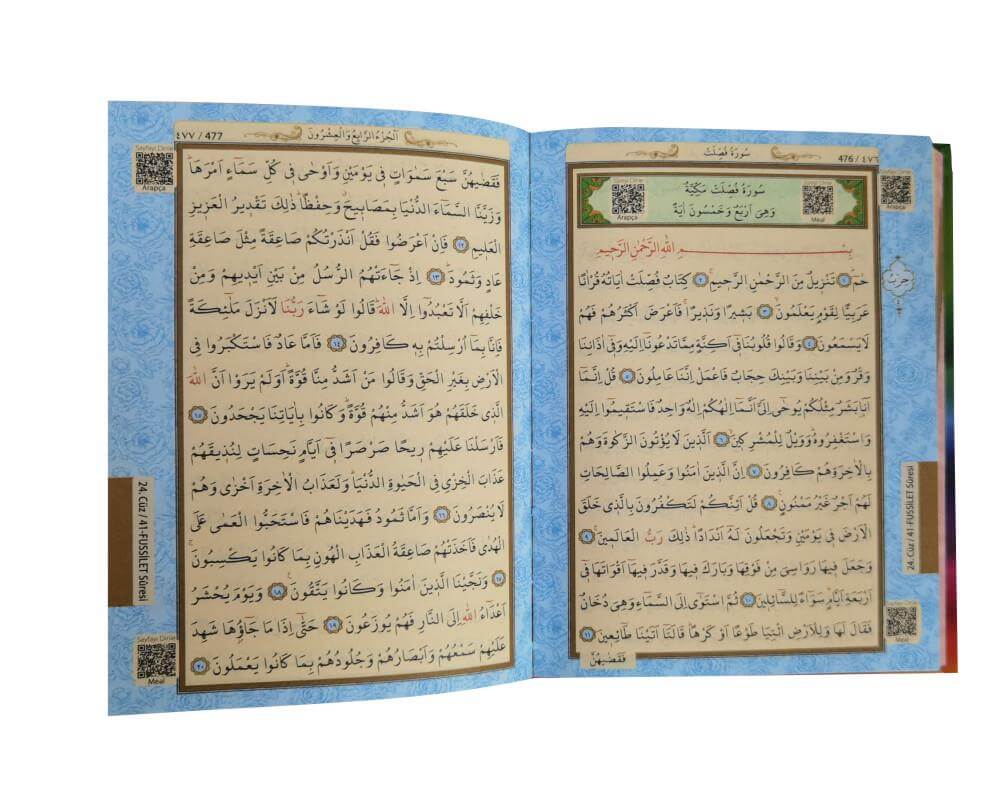 سُورَةُ فُصِّلَتْ
476 / ٤٧٦
Sureyi Dinle
Arapça
سُورَةُ فُصِّلَتْ مَكِّيَّةٌ
وَهِيَ اَرْبَعٌ وَخَمْسُونَ اٰيَةً
Meal
بِسْــــمِ اللّٰهِ الرَّحْمٰنِ الرَّحِيمِ
حٰمٓ ﴿١﴾ تَنْزِيلٌ مِنَ الرَّحْمٰنِ الرَّحِيمِ ﴿٢﴾ كِتَابٌ فُصِّلَتْ اٰيَاتُهُ قُرْاٰنًا
عَرَبِيًّا لِقَوْمٍ يَعْلَمُونَ ﴿٣﴾ بَشِيرًا وَنَذِيرًا فَاَعْرَضَ اَكْثَرُهُمْ فَهُمْ
لَا يَسْمَعُونَ ﴿٤﴾ وَقَالُوا قُلُوبُنَا فِٓي اَكِنَّةٍ مِمَّا تَدْعُونَٓا اِلَيْهِ وَفِٓي اٰذَانِنَا
وَقْرٌ وَمِنْ بَيْنِنَا وَبَيْنِكَ حِجَابٌ فَاعْمَلْ اِنَّنَا عَامِلُونَ ﴿٥﴾ قُلْ اِنَّمَٓا
اَنَا بَشَرٌ مِثْلُكُمْ يُوحٰٓى اِلَيَّ اَنَّمَٓا اِلٰهُكُمْ اِلٰهٌ وَاحِدٌ فَاسْتَقِيمُٓوا اِلَيْهِ
وَاسْتَغْفِرُوهُ وَوَيْلٌ لِلْمُشْرِكِينَ ﴿٦﴾ اَلَّذِينَ لَا يُؤْتُونَ الزَّكٰوةَ وَهُمْ
بِالْاٰخِرَةِ هُمْ كَافِرُونَ ﴿٧﴾ اِنَّ الَّذِينَ اٰمَنُوا وَعَمِلُوا الصَّالِحَاتِ
لَهُمْ اَجْرٌ غَيْرُ مَمْنُونٍ ﴿٨﴾ قُلْ اَئِنَّكُمْ لَتَكْفُرُونَ بِالَّذِي خَلَقَ
الْاَرْضَ فِي يَوْمَيْنِ وَتَجْعَلُونَ لَهُٓ اَنْدَادًا ذٰلِكَ رَبُّ الْعَالَمِينَ ﴿٩﴾
وَجَعَلَ فِيهَا رَوَاسِيَ مِنْ فَوْقِهَا وَبَارَكَ فِيهَا وَقَدَّرَ فِيهَٓا اَقْوَاتَهَا فِٓي
اَرْبَعَةِ اَيَّامٍ سَوَٓاءً لِلسَّٓائِلِينَ ﴿١٠﴾ ثُمَّ اسْتَوٰٓى اِلَى السَّمَٓاءِ وَهِيَ دُخَانٌ
فَقَالَ لَهَا وَلِلْاَرْضِ ائْتِيَا طَوْعًا اَوْ كَرْهًا قَالَتَٓا اَتَيْنَا طَٓائِعِينَ ﴿١١﴾
فَقَضٰيهُنَّ
Arapça
حزب
24. Cüz / 41-FUSSİLET Sûresi
Meal
٤٧٧ / 477
اَلْجُزْءُ الرَّابِعُ وَالْعِشْرُونَ
Sayfayı Dinle
Arapça
فَقَضٰيهُنَّ سَبْعَ سَمٰوَاتٍ فِي يَوْمَيْنِ وَاَوْحٰى فِي كُلِّ سَمَٓاءٍ اَمْرَهَا
وَزَيَّنَّا السَّمَٓاءَ الدُّنْيَا بِمَصَابِيحَ وَحِفْظًا ذٰلِكَ تَقْدِيرُ الْعَزِيزِ
الْعَلِيمِ ﴿١٢﴾ فَاِنْ اَعْرَضُوا فَقُلْ اَنْذَرْتُكُمْ صَاعِقَةً مِثْلَ صَاعِقَةِ
عَادٍ وَثَمُودَ ﴿١٣﴾ اِذْ جَٓاءَتْهُمُ الرُّسُلُ مِنْ بَيْنِ اَيْدِيهِمْ وَمِنْ
خَلْفِهِمْ اَلَّا تَعْبُدُٓوا اِلَّا اللّٰهَ قَالُوا لَوْ شَٓاءَ رَبُّنَا لَاَنْزَلَ مَلٰٓئِكَةً
فَاِنَّا بِمَٓا اُرْسِلْتُمْ بِهٖ كَافِرُونَ ﴿١٤﴾ فَاَمَّا عَادٌ فَاسْتَكْبَرُوا فِي
الْاَرْضِ بِغَيْرِ الْحَقِّ وَقَالُوا مَنْ اَشَدُّ مِنَّا قُوَّةً اَوَلَمْ يَرَوْا اَنَّ اللّٰهَ
الَّذِي خَلَقَهُمْ هُوَ اَشَدُّ مِنْهُمْ قُوَّةً وَكَانُوا بِاٰيَاتِنَا يَجْحَدُونَ ﴿١٥﴾
فَاَرْسَلْنَا عَلَيْهِمْ رِيحًا صَرْصَرًا فِٓي اَيَّامٍ نَحِسَاتٍ لِنُذِيقَهُمْ
عَذَابَ الْخِزْيِ فِي الْحَيٰوةِ الدُّنْيَا وَلَعَذَابُ الْاٰخِرَةِ اَخْزٰى وَهُمْ
لَا يُنْصَرُونَ ﴿١٦﴾ وَاَمَّا ثَمُودُ فَهَدَيْنَاهُمْ فَاسْتَحَبُّوا الْعَمٰى عَلَى
الْهُدٰى فَاَخَذَتْهُمْ صَاعِقَةُ الْعَذَابِ الْهُونِ بِمَا كَانُوا يَكْسِبُونَ
﴿١٧﴾ وَنَجَّيْنَا الَّذِينَ اٰمَنُوا وَكَانُوا يَتَّقُونَ ﴿١٨﴾ وَيَوْمَ يُحْشَرُ
اَعْدَٓاءُ اللّٰهِ اِلَى النَّارِ فَهُمْ يُوزَعُونَ ﴿١٩﴾ حَتّٰٓى اِذَا مَا جَٓاؤُ۫هَا شَهِدَ
عَلَيْهِمْ سَمْعُهُمْ وَاَبْصَارُهُمْ وَجُلُودُهُمْ بِمَا كَانُوا يَعْمَلُونَ ﴿٢٠﴾
24. Cüz / 41-FUSSİLET Sûresi
Sayfayı Dinle
Meal